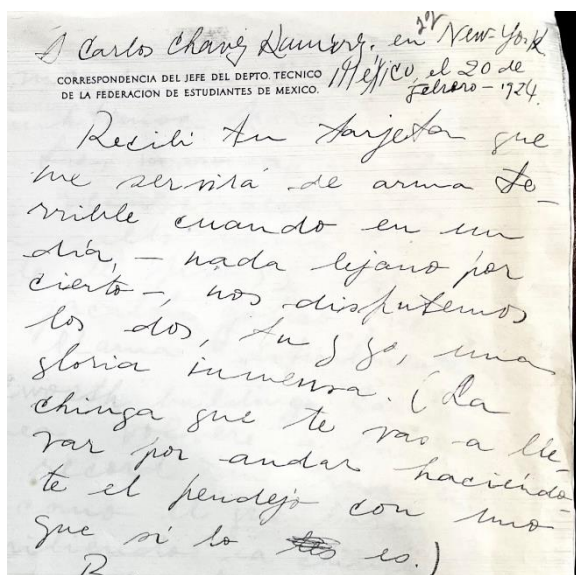 A Carlos Chavez Ramírez. en New-York
CORRESPONDENCIA DEL JEFE DEL DEPTO. TECNICO
DE LA FEDERACION DE ESTUDIANTES DE MEXICO.
México, el 20 de
febrero - 1924.
Recibí tu tarjeta que
me servirá de arma te-
rrible cuando en un
día, - nada lejano por
cierto -, nos disputemos
los dos, tu y yo, una
gloria inmensa. (La
chinga que te vas a lle-
var por andar haciéndo-
te el pendejo con uno
que si lo es.)